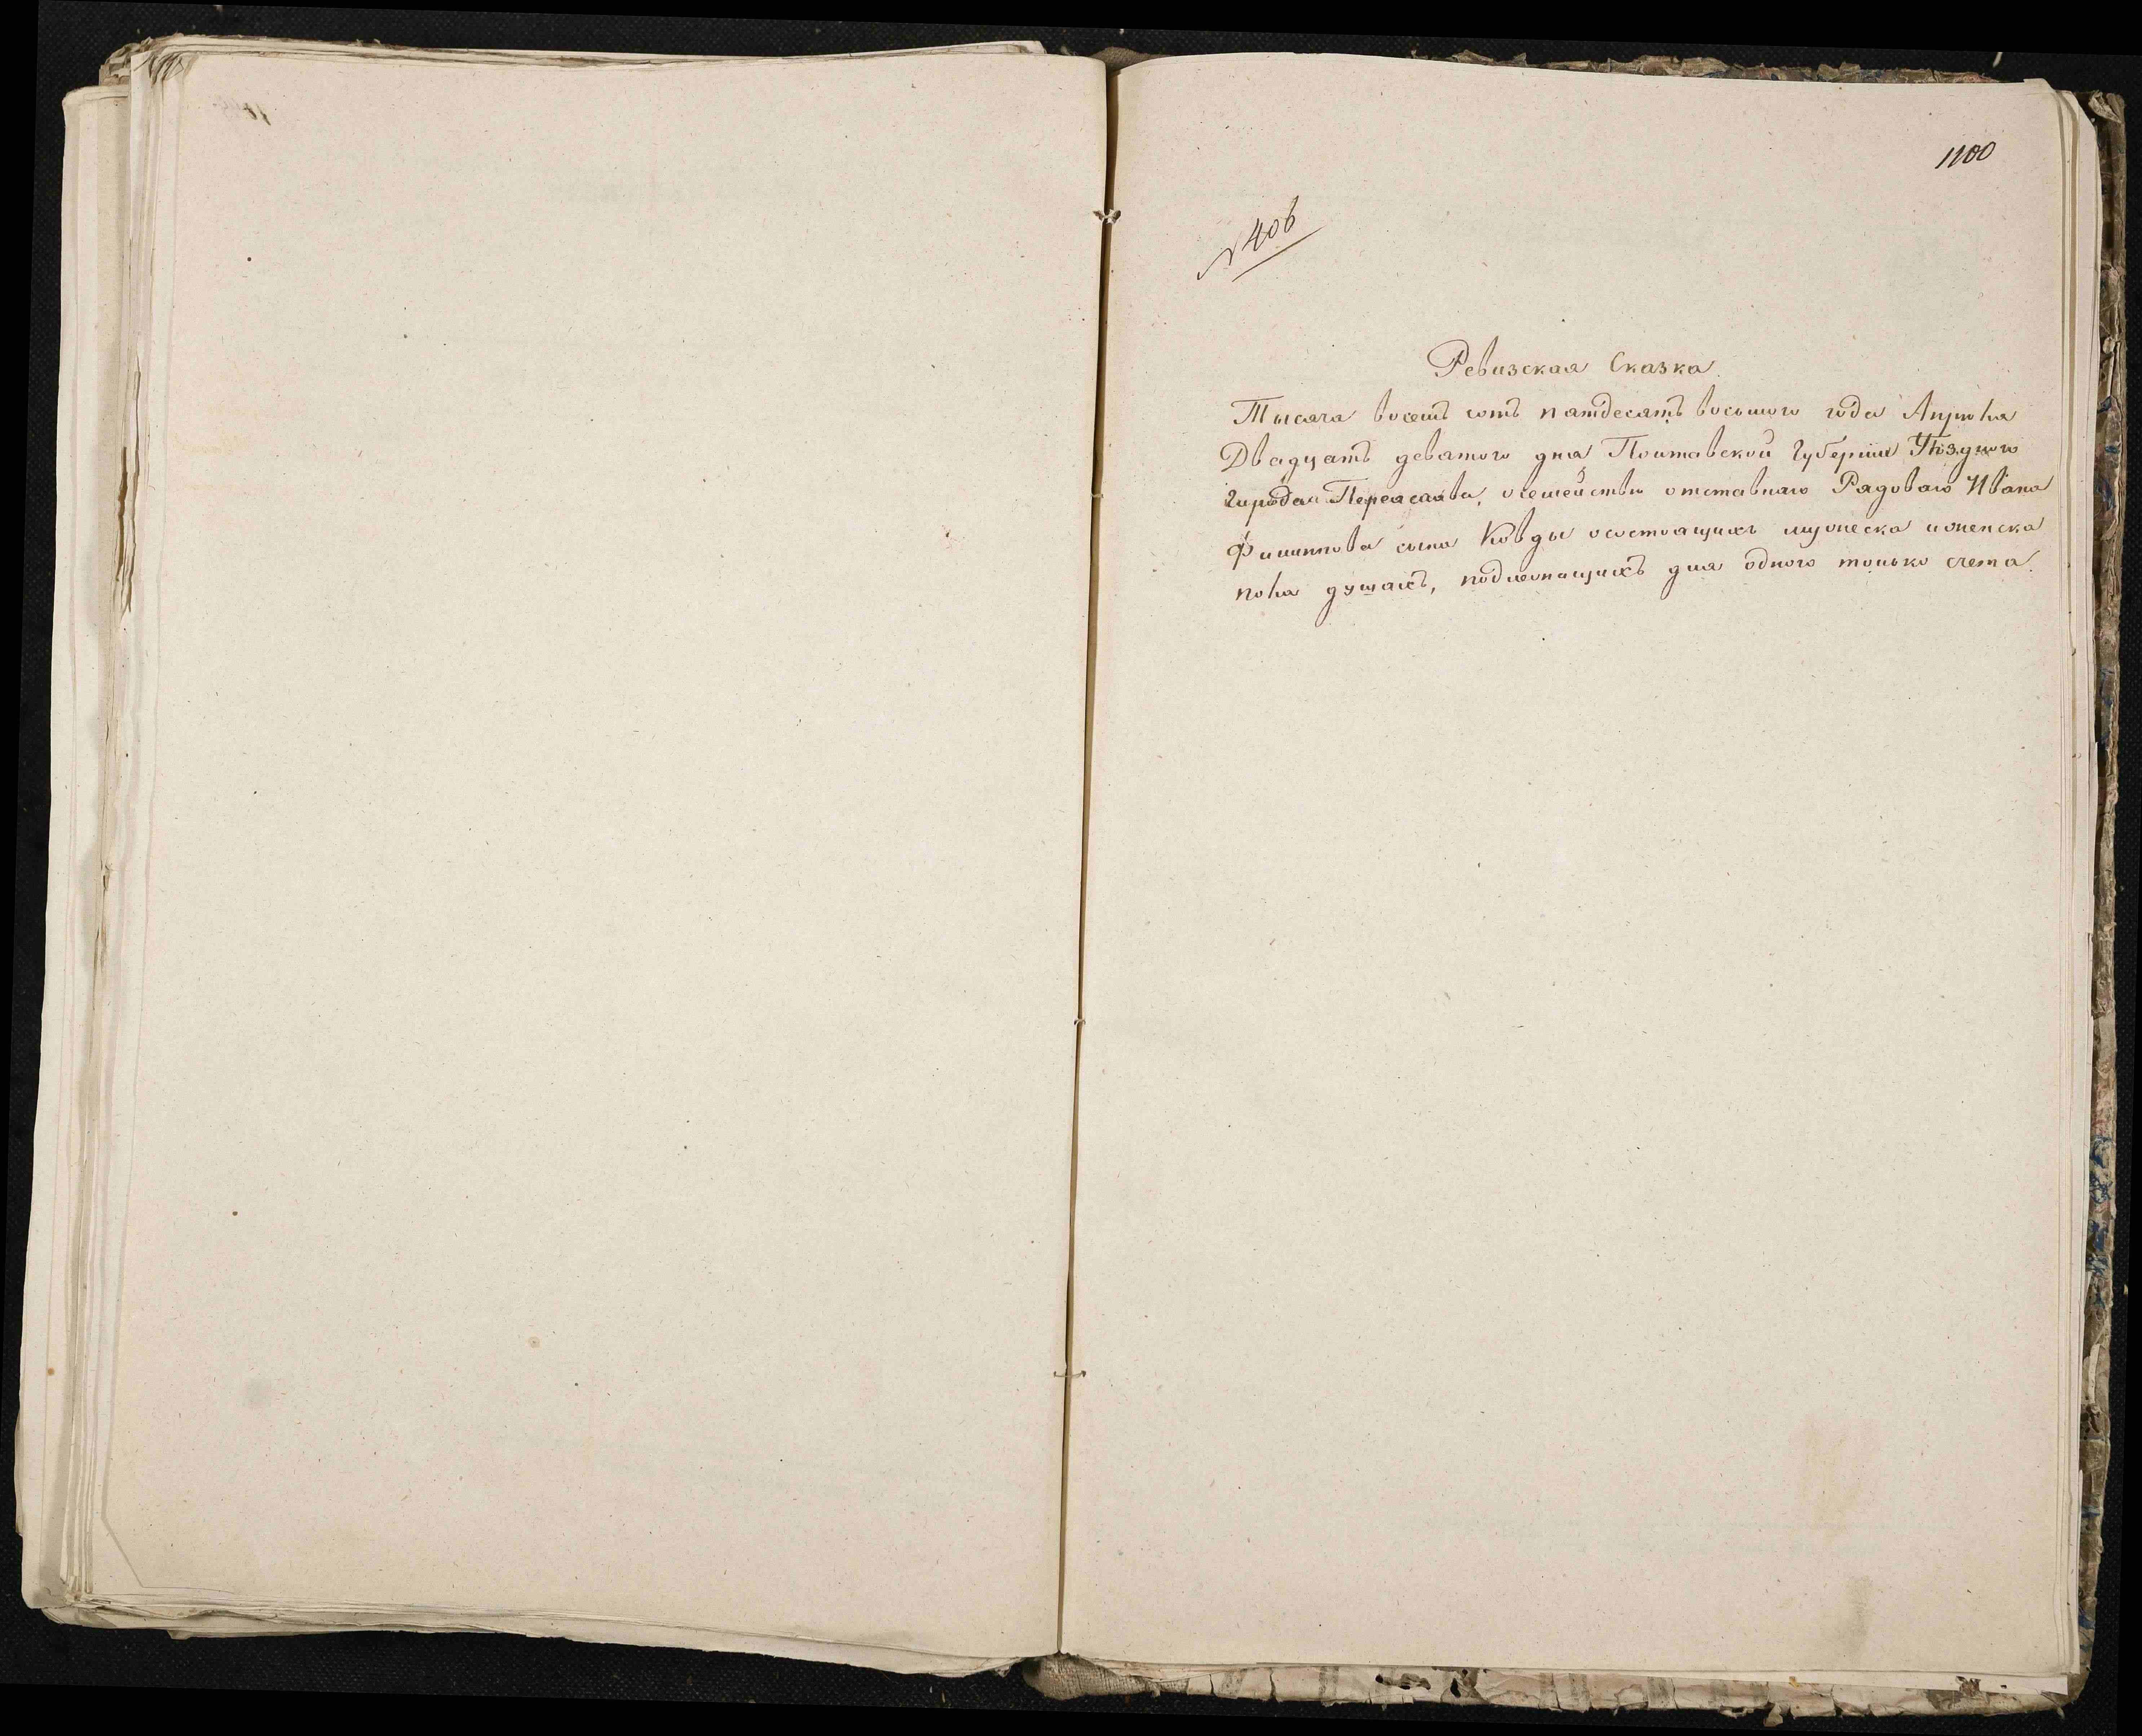 1100
№ 406
Ревизская Сказка
Тысяча восемъ сотъ пятдесятъ восьмого года Апреля
Двадцать девятого дня Полтавской Губерніи Уѣздного
города Переяслава, осемействе отставнаго Рядоваго Ивана
Филиппова сына Ковды осостоящихъ мужеска иженска
пола душахъ, подлежащихъ для одного только счета.